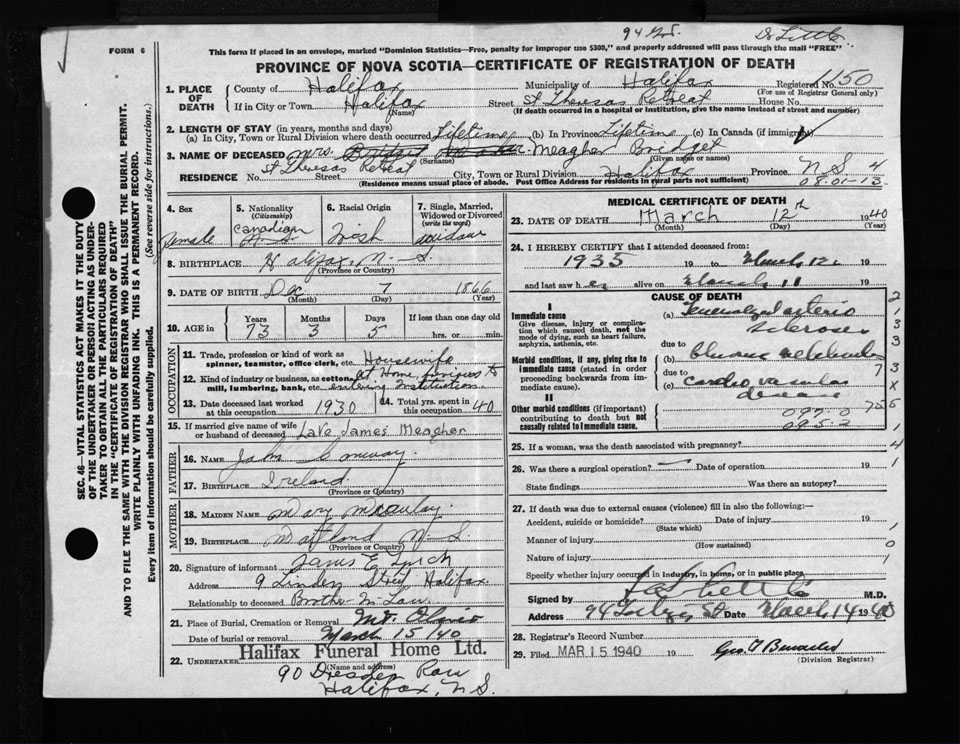 94 Dr Little
FORM 6
This form if placed in an envelope, marked "Dominion Statistics—Free, penalty for improper use $300," and properly addressed will pass through the mail "FREE"
PROVINCE OF NOVA SCOTIA—CERTIFICATE OF REGISTRATION OF DEATH
1. PLACE OF DEATH { County of Halifax Municipality of Halifax Registered No. 1150
(For use of Registrar General only)
If in City or Town Halifax Street St Theresas Retreat House No.
(Name) (If death occurred in a hospital or institution, give the name instead of street and number)
2. LENGTH OF STAY (in years, months and days)
(a) In City, Town or Rural Division where death occurred Lifetime (b) In Province Lifetime (c) In Canada (if immigrant)
3. NAME OF DECEASED Mrs. Meagher Bridget
(Surname) (Given name or names)
RESIDENCE No. Street St Theresas Retreat City, Town or Rural Division Halifax Province N S 4
(Residence means usual place of abode. Post Office Address for residents in rural parts not sufficient) 08.01-13
SEC. 46—VITAL STATISTICS ACT MAKES IT THE DUTY OF THE UNDERTAKER OR PERSON ACTING AS UNDERTAKER TO OBTAIN ALL THE PARTICULARS REQUIRED IN THE "CERTIFICATE OF REGISTRATION OF DEATH" AND TO FILE THE SAME WITH THE DIVISION REGISTRAR WHO SHALL ISSUE THE BURIAL PERMIT.
WRITE PLAINLY WITH UNFADING INK. THIS IS A PERMANENT RECORD.
Every item of information should be carefully supplied. (See reverse side for instructions.)
4. Sex Female
5. Nationality (Citizenship) Canadian N. S.
6. Racial Origin Irish
7. Single, Married, Widowed or Divorced (write the word) Widow
8. BIRTHPLACE Halifax N. S.
(Province or Country)
9. DATE OF BIRTH Dec 7 1866
(Month) (Day) (Year)
10. AGE in Years 73 Months 3 Days 5 If less than one day old hrs. or min.
OCCUPATION
11. Trade, profession or kind of work as spinner, teamster, office clerk, etc. Housewife
12. Kind of industry or business, as cotton mill, lumbering, bank, etc. at Home, previous to entering Institution
13. Date deceased last worked at this occupation 1930
14. Total yrs. spent in this occupation 40
15. If married give name of wife or husband of deceased Late James Meagher
FATHER
16. Name John Conway
17. BIRTHPLACE Ireland
(Province or Country)
MOTHER
18. MAIDEN NAME Mary
19. BIRTHPLACE Maitland N—S
(Province or Country)
20. Signature of informant James E Lynch
Address 9 Linden Street Halifax
Relationship to deceased Brother In Law
21. Place of Burial, Cremation or Removal Mt. Olivet
Date of burial or removal March 15/40
22. UNDERTAKER Halifax Funeral Home Ltd.
(Name and address)
90 Dresden Row
Halifax, N S.
MEDICAL CERTIFICATE OF DEATH
23. DATE OF DEATH March 12th 1940
(Month) (Day) (Year)
24. I HEREBY CERTIFY that I attended deceased from:
1935 19 to March 12 19
and last saw her alive on March 11 19
CAUSE OF DEATH
I
Immediate cause
Give disease, injury or complication which caused death, not the mode of dying, such as heart failure, asphyxia, asthenia, etc.
(a) Generalized arterio sclerosis
due to
Morbid conditions, if any, giving rise to immediate cause (stated in order proceeding backwards from immediate cause).
(b) Chronic
due to
(c) cardio vascular disease
II
Other morbid conditions (if important) contributing to death but not causally related to immediate cause.
097-0
095-2
2 1 3 3 7 3 X 755 1 4 1 1 0 1
25. If a woman, was the death associated with pregnancy?
26. Was there a surgical operation? — Date of operation 19
State findings Was there an autopsy?
27. If death was due to external causes (violence) fill in also the following:—
Accident, suicide or homicide? Date of injury 19
(State which)
Manner of injury
(How sustained)
Nature of injury
Specify whether injury occurred in industry, in home, or in public place
Signed by M.D.
Address 94 St Date March 14 1940
28. Registrar's Record Number
29. Filed MAR 15 1940 19
(Division Registrar)